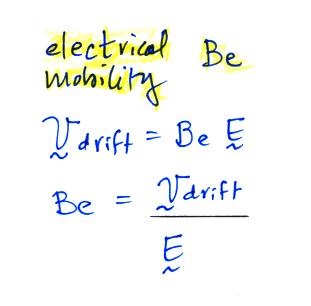 electrical Be
mobility
V drift = Be E
Be = V drift
E